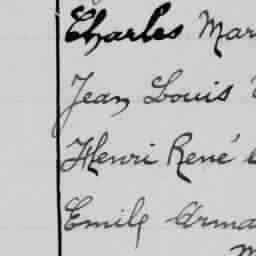 Charles Mar
Jean Louis
Henri René
Emile Arma